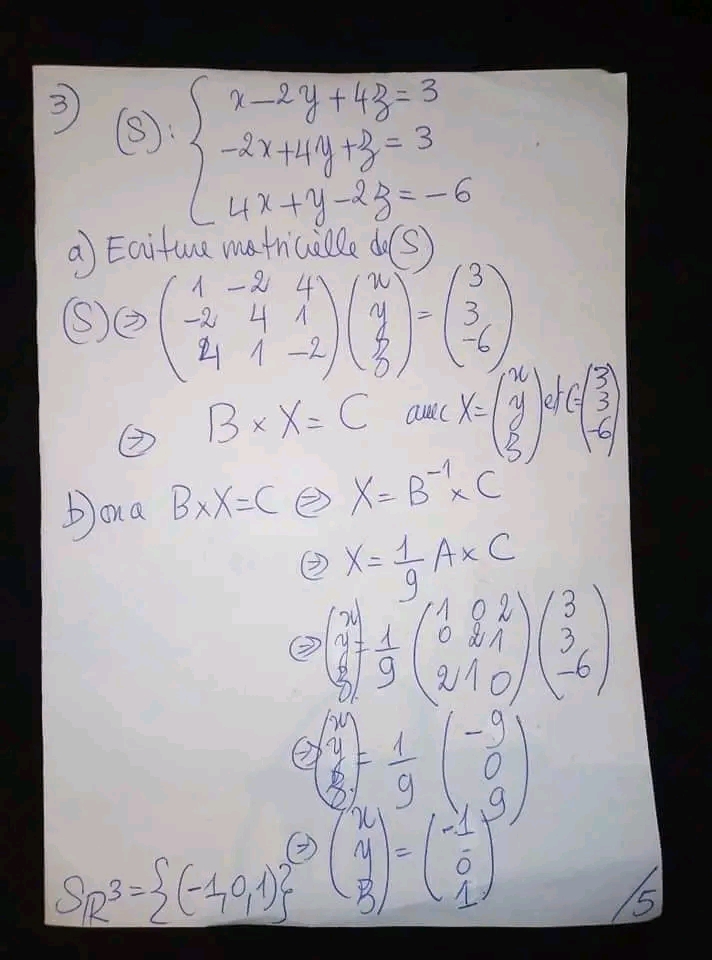 3)
(S): { x - 2y + 4z = 3
-2x + 4y + z = 3
4x + y - 2z = -6
a) Ecriture matricielle de (S)
(S) ⇔ ( 1 -2 4 ; -2 4 1 ; 4 1 -2 ) ( x ; y ; z ) = ( 3 ; 3 ; -6 )
⇔ B × X = C avec X = ( x ; y ; z ) et C = ( 3 ; 3 ; -6 )
b) on a B×X=C ⇔ X = B⁻¹ × C
⇔ X = 1/9 A × C
⇔ ( x ; y ; z ) = 1/9 ( 1 0 2 ; 0 2 1 ; 2 1 0 ) ( 3 ; 3 ; -6 )
⇔ ( x ; y ; z ) = 1/9 ( -9 ; 0 ; 9 )
⇔ ( x ; y ; z ) = ( -1 ; 0 ; 1 )
S_ℝ³ = {(-1,0,1)}
/5